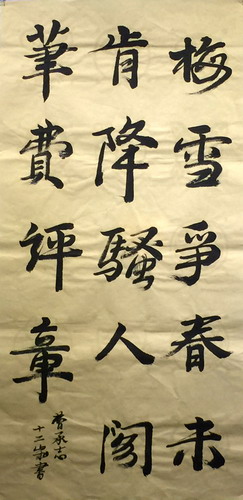 梅雪爭春未
肯降騷人閣
筆費評章
曹承志
十二歲書